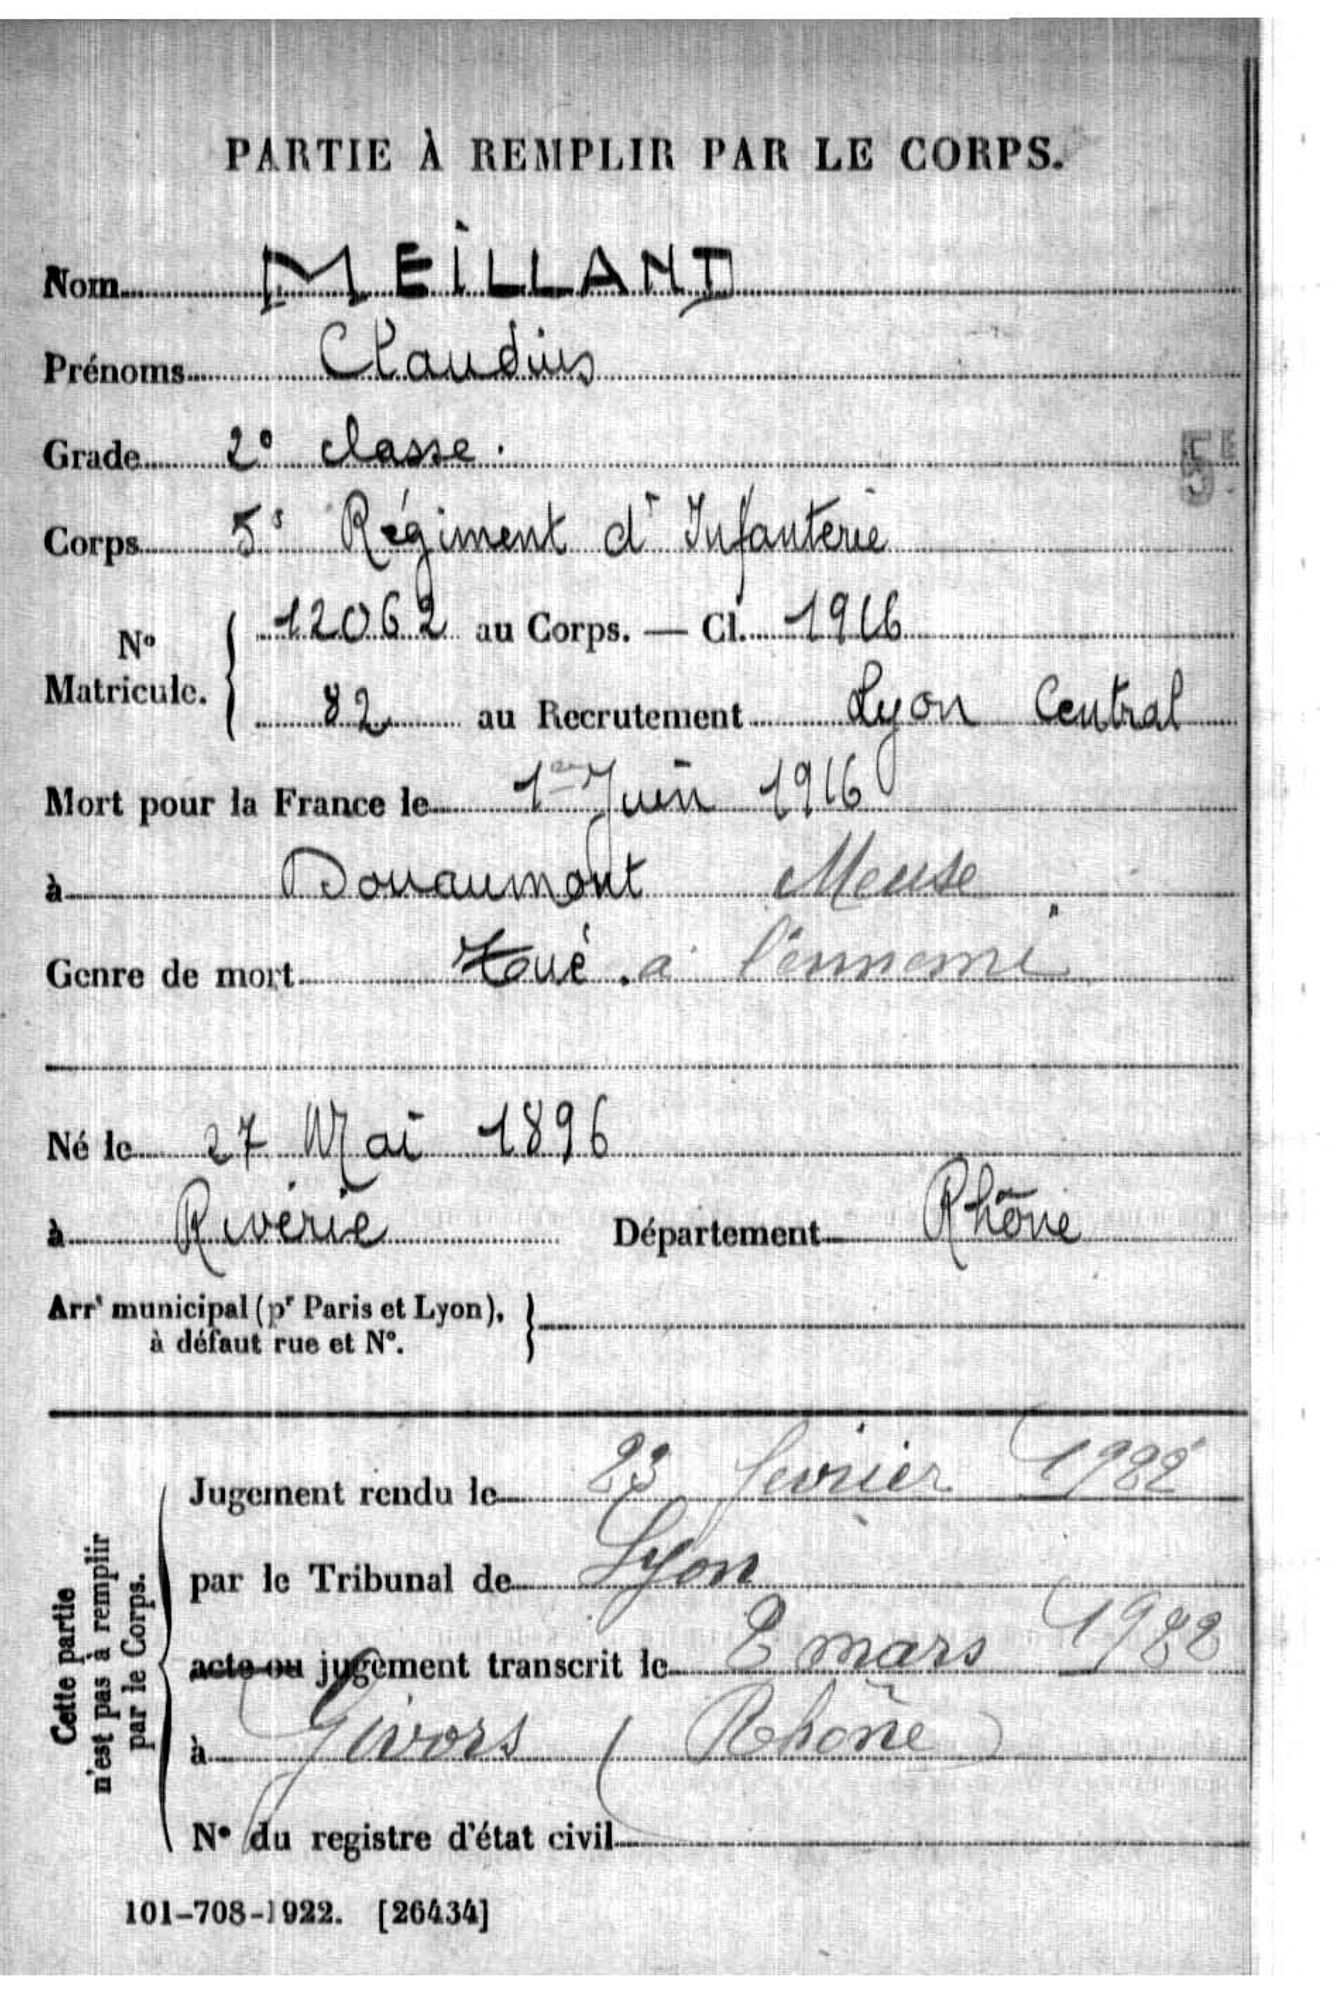 PARTIE À REMPLIR PAR LE CORPS.
Nom MEILLAND
Prénoms Claudius
Grade 2e classe.
5E
Corps 5e Régiment d'Infanterie
No Matricule. { 12062 au Corps. — Cl. 1916
82 au Recrutement Lyon Central
Mort pour la France le 1er Juin 1916
à Douaumont Meuse
Genre de mort Tué à l'ennemi
Né le 27 Mai 1896
à Riverie Département Rhône
Arrt municipal (pr Paris et Lyon), }
à défaut rue et No.
Cette partie n'est pas à remplir par le Corps.
Jugement rendu le 23 février 1922
par le Tribunal de Lyon
acte ou jugement transcrit le 2 mars 1922
à Givors (Rhône)
No du registre d'état civil
101-708-1922. [26434]